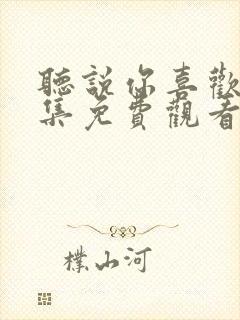 聽說你喜歡
集免費觀看
樸山河